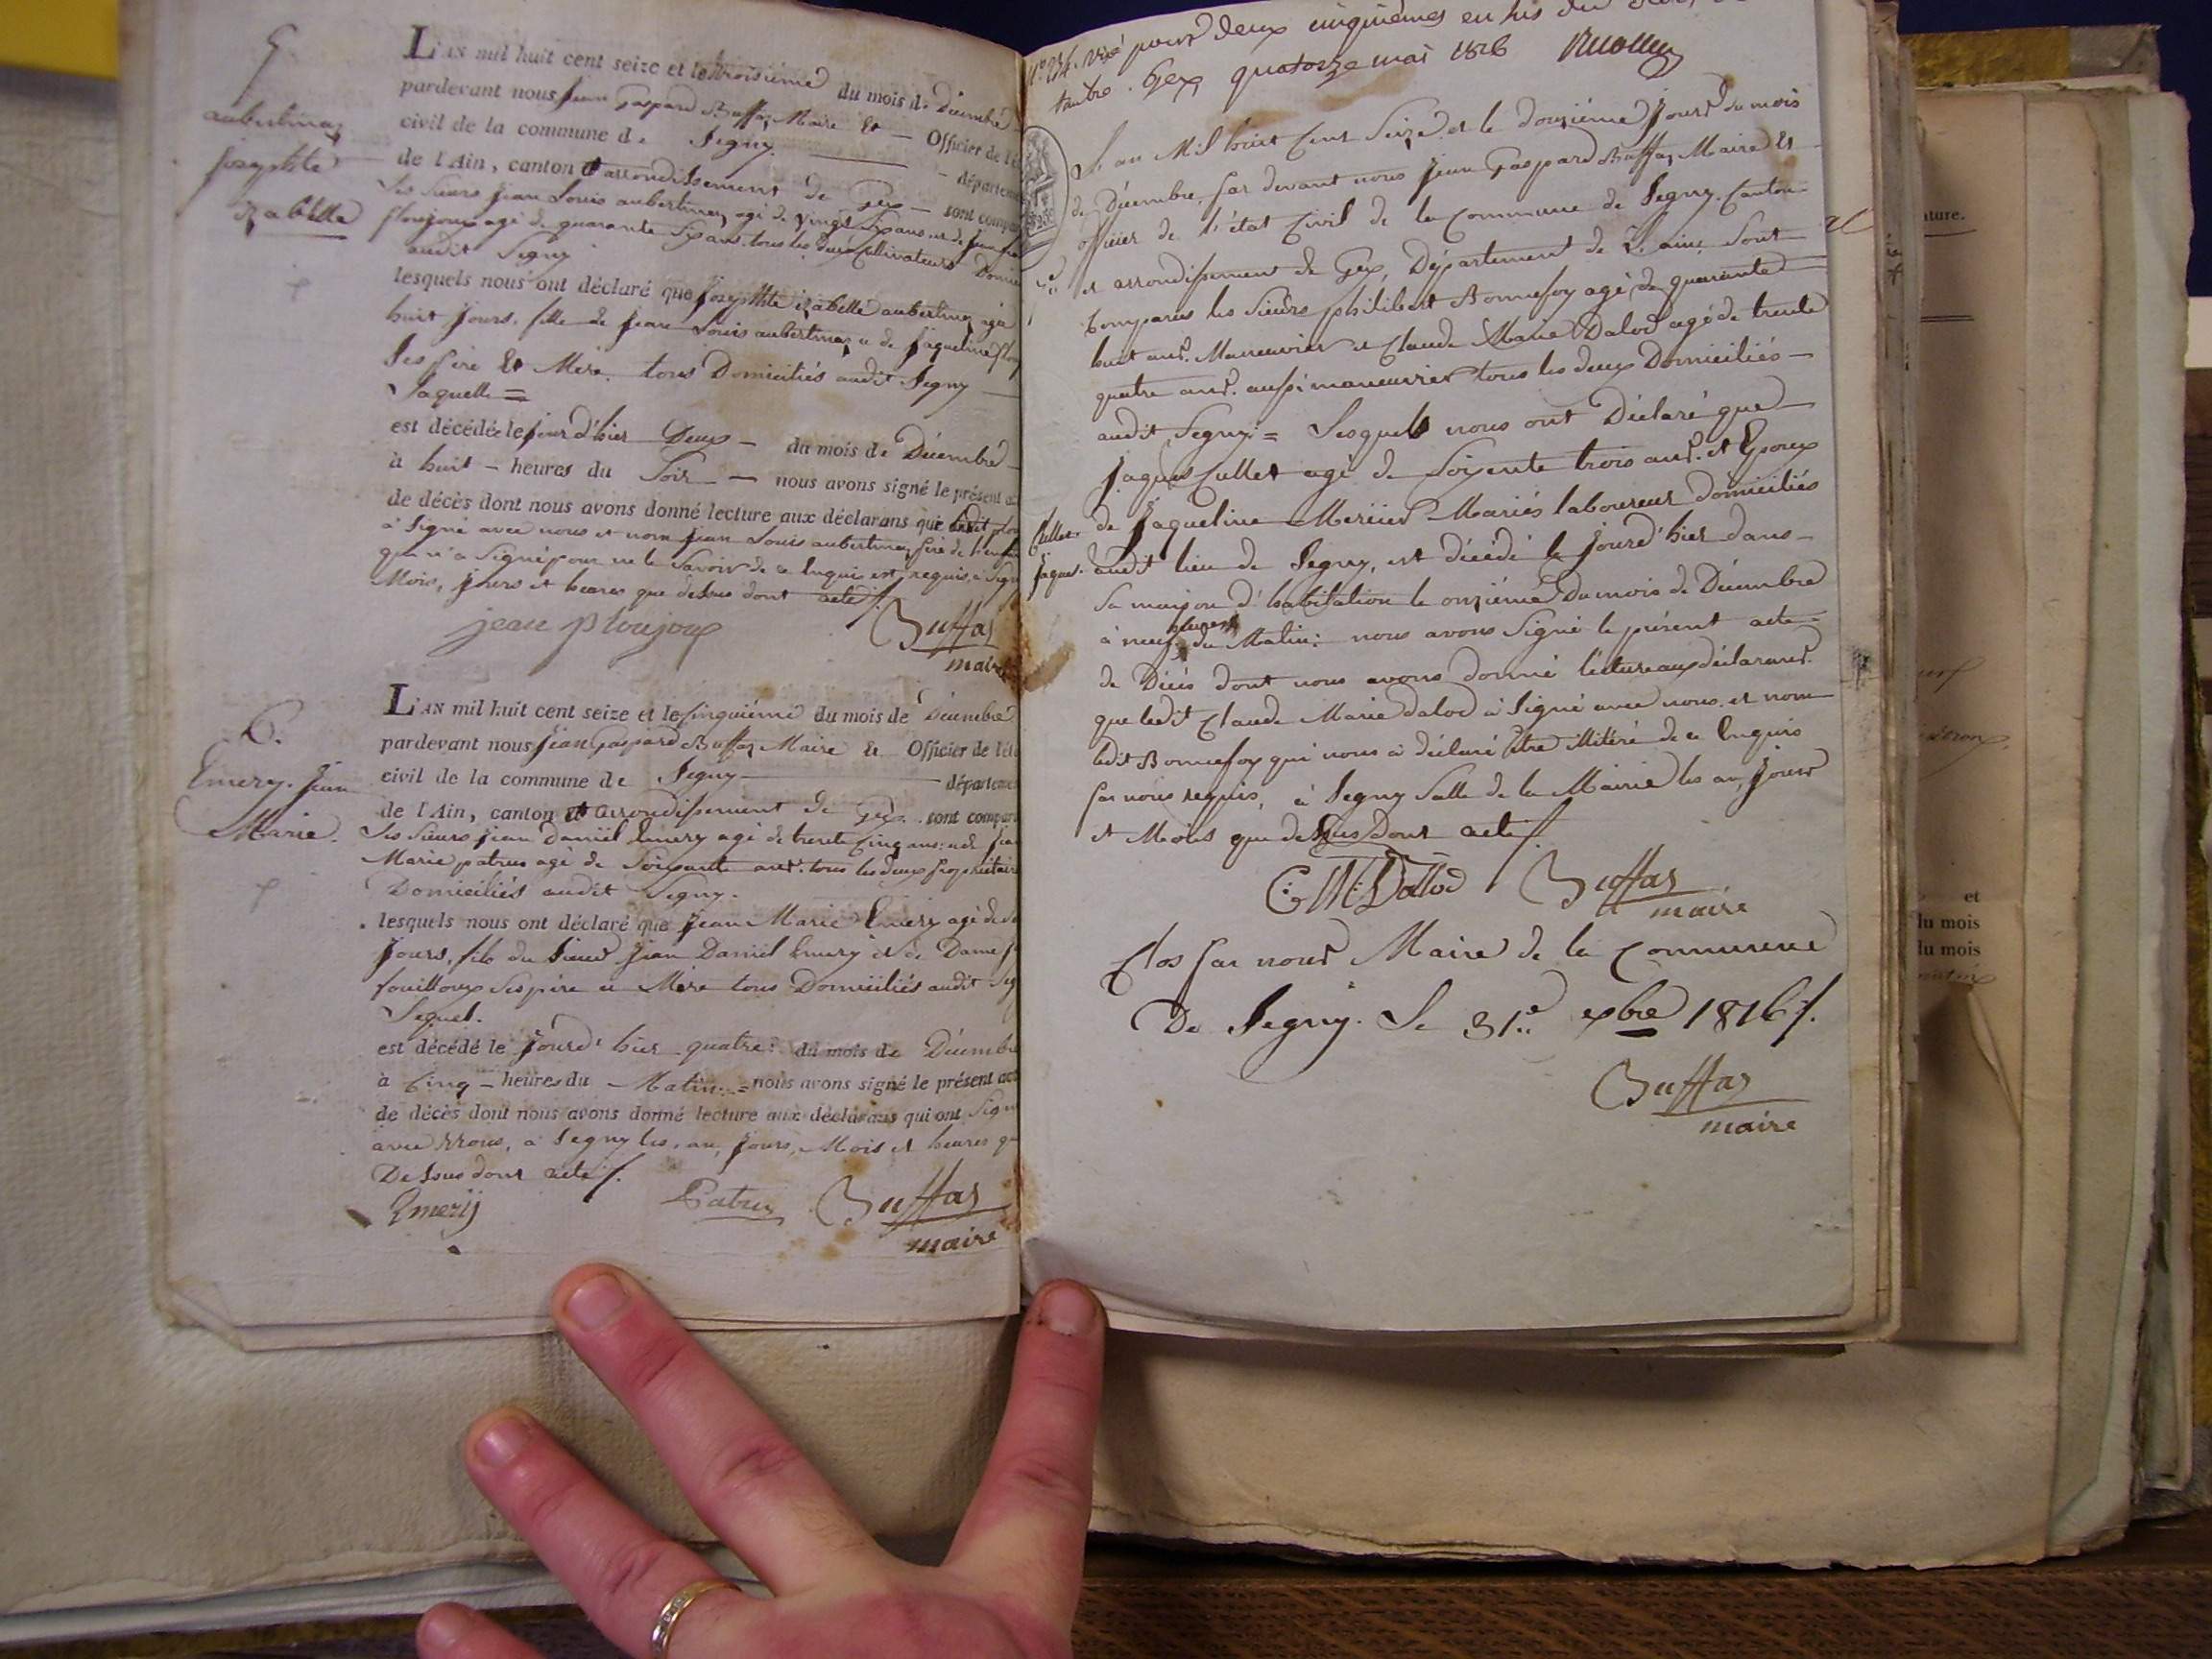 5.
aubertinaz
Josephte
izabelle
L'AN mil huit cent seize et le troisième du mois de Décembre
pardevant nous Jean Gaspard Buffaz Maire Et — Officier de l'é
civil de la commune de Segny — départeme
de l'Ain, canton et arrondissement de Gex — sont compar
les sieurs Jean Louis aubertinaz agé de vingt six ans et de Jean
ploujoux agé de quarante six ans tous les deux Cultivateurs Domici
audit Segny
lesquels nous ont déclaré que Josephte izabelle aubertinaz agée
huit Jours, fille de Jean Louis aubertinaz et de Jaqueline plou
Ses père Et Mère, tous Domiciliés audit Segny
Laquelle =
est décédée le Jour d'hier Deux — du mois de Décembre
à huit — heures du Soir — nous avons signé le présent ac
de décès dont nous avons donné lecture aux déclarans que ledit plou
à Signé avec nous et non Jean Louis aubertinaz père de l'enfant
qui n'a Signé pour ne le Savoir de ce Enquis et requis, à Segny
Mois, jours et heures que dessus dont acte
jean Ploujoux Buffaz
maire
6.
Emery Jean
Marie.
L'AN mil huit cent seize et le Cinquième du mois de Décembre
pardevant nous Jean Gaspard Buffaz Maire Et Officier de l'ét
civil de la commune de Segny — départeme
de l'Ain, canton et arrondissement de Gex. sont compar
Les sieurs Jean Daniel Emery agé de trente Cinq ans et de Jea
Marie patrus agé de Soixante ans tous les deux propriétaire
Domiciliés audit Segny.
lesquels nous ont déclaré que Jean Marie Emery agé de
Jours, fils du Sieur Jean Daniel Emery et de Dame
fouilloux Ses père et Mère tous Domiciliés audit Seg
Lequel.
est décédé le Jourd'hier quatre du mois de Décembre
à Cinq — heures du Matin = nous avons signé le présent act
de décès dont nous avons donné lecture aux déclarans qui ont Sign
avec Nous, à Segny les, an, Jours, Mois et heures q
Dessus dont acte
Emery Patrus Buffaz
maire
visé pour deux cinquièmes en sus du
timbre. Gex quatorze mai 1816
L'an Mil huit Cent Seize et le douzième Jour du mois
de Décembre, par devant nous Jean Gaspard Buffaz Maire Et
officier de l'état Civil de la Commune de Segny, Canton
et arrondissement de Gex, Département de L'ain, Sont
Comparus les Sieurs philibert Bonnefoy agé de quarante
huit ans. Maneuvrier et Claude Marie Dalod agé de trente
quatre ans. aussi maneuvrier tous les deux Domiciliés —
audit Segny = Lesquels nous ont Déclaré que
Jaques Cullet agé de Soixante trois ans. et Epoux
de Jaqueline Mercier Mariés laboureur domiciliés
Cullet
Jaques.
audit lieu de Segny, est décédé le Jourd'hier dans —
Sa maison d'habitation le onzième Du mois de Décembre
à neuf heures du Matin: nous avons Signé le présent acte
de Décès dont nous avons donné lecture aux déclarans.
que ledit Claude Marie dalod à Signé avec nous et non
ledit Bonnefoy qui nous à déclaré être illitéré de ce Enquis
par nous requis, à Segny Salle de la Mairie les an, Jours
et Mois que dessus Dont acte
C: M: Dallod Buffaz
maire
Clos par nous Maire de la Commune
De Segny. Le 31.e xbre 1816
Buffaz
maire
ature.
et
lu mois
lu mois